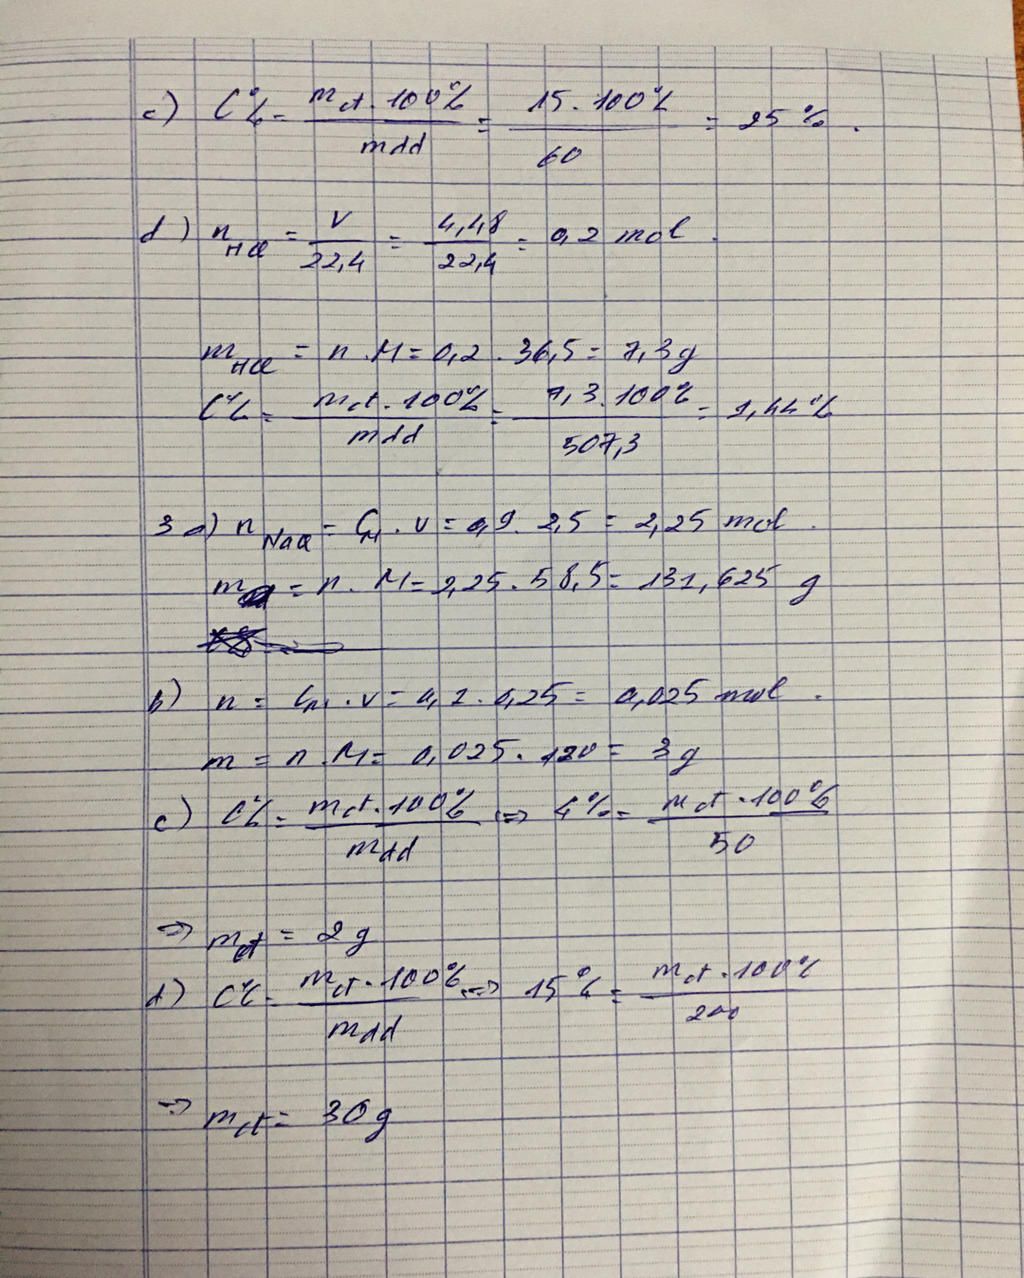 c) C% = mct . 100% / mdd = 15 . 100% / 60 = 25 % .
d) nHCl = V / 22,4 = 4,48 / 22,4 = 0,2 mol .
mHCl = n . M = 0,2 . 36,5 = 7,3 g
C% = mct . 100% / mdd = 7,3 . 100% / 507,3 = 1,44 %
3 a) nNaCl = CM . V = 0,9 . 2,5 = 2,25 mol .
m = n . M = 2,25 . 58,5 = 131,625 g
b) n = CM . V = 0,1 . 0,25 = 0,025 mol .
m = n . M = 0,025 . 120 = 3 g
c) C% = mct . 100% / mdd => 4% = mct . 100% / 50
=> mct = 2 g
d) C% = mct . 100% / mdd => 15 % = mct . 100% / 200
=> mct = 30 g